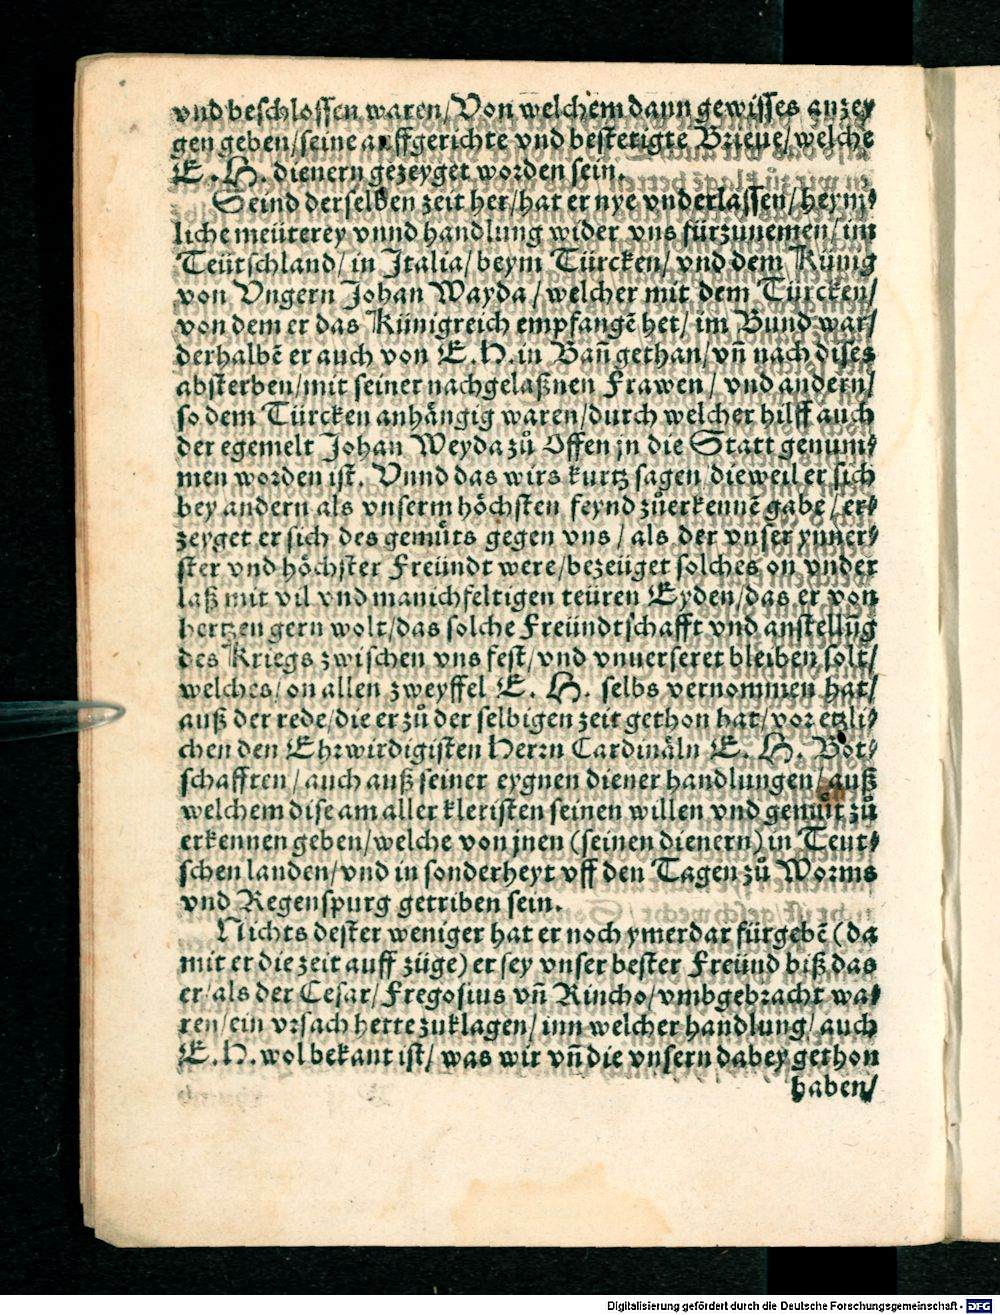 vnd beschlossen waren/Von welchem dann gewisses anzey
gen geben/seine auffgerichte vnd bestetigte Brieue/welche
E.H. dienern gezeyget worden sein.
Seind derselben zeit her/hat er nye vnderlassen/heym⸗
liche meüterey vnnd handlung wider vns fürzunemen/im
Teütschland/in Italia/beym Türcken/vnd dem Künig
von Vngern Johan Wayda/welcher mit dem Türcken/
von dem er das Künigreich empfangē het/im Bund war/
derhalbē er auch von E.H. in Bañ gethan/vñ nach dises
absterben/mit seiner nachgelaßnen Frawen/vnd andern/
so dem Türcken anhängig waren/durch welcher hilff auch
der egemelt Johan Weyda zů Offen in die Statt genum⸗
men worden ist. Vnnd das wirs kurtz sagen/dieweil er sich
bey andern als vnserm höchsten feynd zůerkennē gabe/er⸗
zeyget er sich des gemüts gegen vns/als der vnser ynner⸗
ster vnd höchster Freündt were/bezeüget solches on vnder
laß mit vil vnd manichfeltigen teüren Eyden/das er von
hertzen gern wolt/das solche Freündtschafft vnd anstellūg
des Kriegs zwischen vns fest/vnd vnuerseret bleiben solt/
welches/on allen zweyffel E. H. selbs vernommen hat/
auß der rede/die er zů der selbigen zeit gethon hat/vor etzli⸗
chen den Ehrwirdigisten Herrn Cardinäln E. H. Bot⸗
schafften/auch auß seiner eygnen diener handlungen/auß
welchem dise am aller kleristen seinen willen vnd gemüt zů
erkennen geben/welche von jnen (seinen dienern) in Teut⸗
schen landen/vnd in sonderheyt vff den Tagen zů Worms
vnd Regenspurg getriben sein.
Nichts dester weniger hat er noch ymerdar fürgebē (da
mit er die zeit auff züge) er sey vnser bester Freünd biß das
er/als der Cesar/Fregosius vñ Rincho/vmbgebracht wa⸗
ren/ein vrsach hette zuklagen/inn welcher handlung/auch
E.H. wol bekant ist/was wir vñ die vnsern dabey gethon
haben/
Digitalisierung gefördert durch die Deutsche Forschungsgemeinschaft - DFG